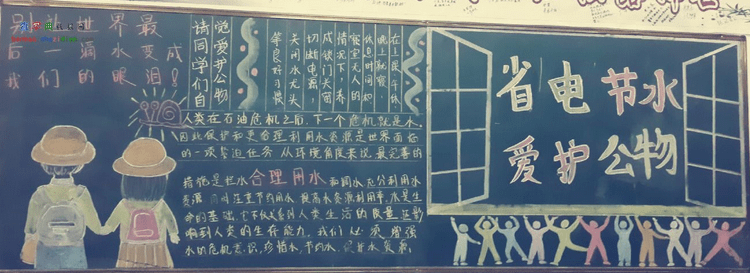 后一滴水变成
我们的眼泪!
请同学们自
觉爱护公物
等良好习惯
关闭水龙头
切断电源,
成锁门关窗
情况下,养
寝室无人的
休息时间和
人类在石油危机之后,下一个危机就是水。
因此保护和更合理利用水资源是世界面临
的一项紧迫任务 从环境角度来说 最完善的
措施是拦水合理用水和调水充分利用水
资源 同时注重节约用水 提高水资源利用率,水是生
命的基础,它不仅关系到人类生活的质量,还影
响到人类的生存能力,我们必须增强
水的危机意识,珍惜水,节约水
省电节水
爱护公物